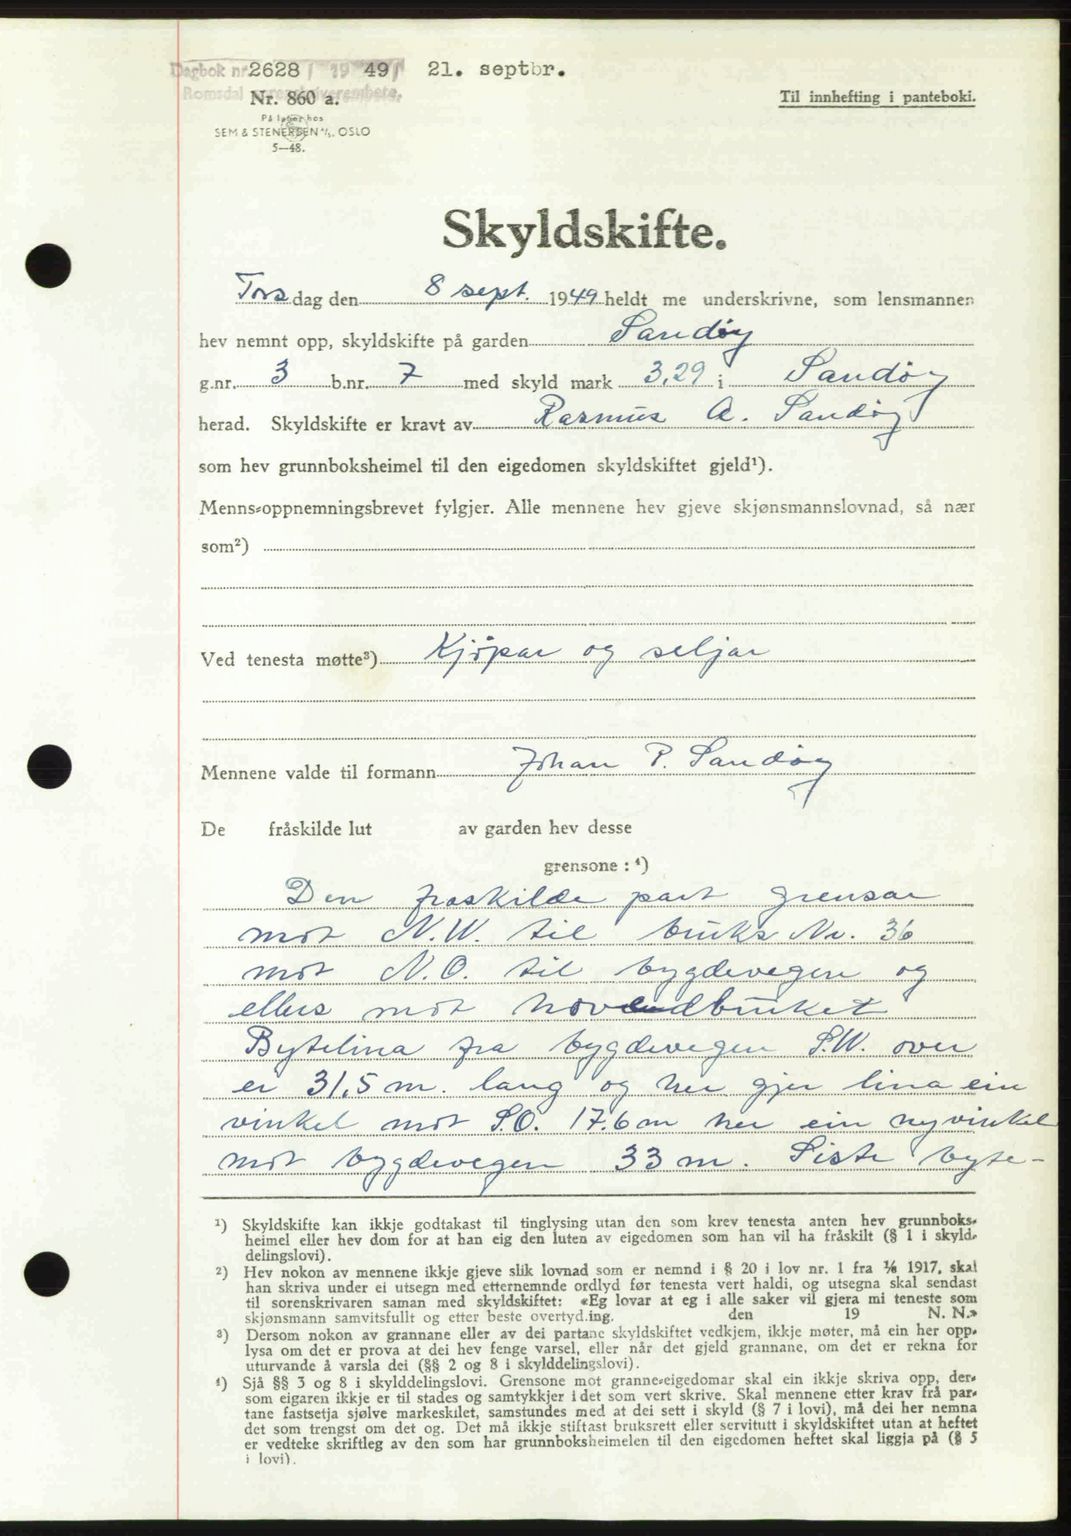 Dagbok nr. 2628 / 1949 21. septbr.
Romsdal sorenskriverembete.
Nr. 860 a.
Til innhefting i panteboki.
På lager hos
SEM & STENERSEN A/S. OSLO
5—48.
Skyldskifte.
Torsdag den 8 sept. 1949 heldt me underskrivne, som lensmannen
hev nemnt opp, skyldskifte på garden Sandøy
g.nr. 3 b.nr. 7 med skyld mark 3,29 i Sandøy
herad. Skyldskifte er kravt av Rasmus A. Sandøy
som hev grunnboksheimel til den eigedomen skyldskiftet gjeld¹).
Menns-oppnemningsbrevet fylgjer. Alle mennene hev gjeve skjønsmannslovnad, så nær
som²)
Ved tenesta møtte³) Kjøpar og seljar
Mennene valde til formann Johan P. Sandøy
De fråskilde lut av garden hev desse
grensone : ⁴)
Den fraskilde part grensar
mot N.W. til bruks Nr. 36
mot N.O. til bygdevegen og
ellers mot hovudbruket
Bytelina fra bygdevegen S.W. over
er 31,5 m. lang og her gjer lina ein
vinkel mot S.O. 17.6 m her ein ny vinkel
mot bygdevegen 33 m. Siste byte-
¹) Skyldskifte kan ikkje godtakast til tinglysing utan den som krev tenesta anten hev grunnboks-
heimel eller hev dom for at han eig den luten av eigedomen som han vil ha fråskilt (§ 1 i skyld-
delingslovi).
²) Hev nokon av mennene ikkje gjeve slik lovnad som er nemnd i § 20 i lov nr. 1 fra ⅛ 1917, skal
han skriva under ei utsegn med etternemnde ordlyd før tenesta vert haldi, og utsegna skal sendast
til sorenskrivaren saman med skyldskiftet: «Eg lovar at eg i alle saker vil gjera mi teneste som
skjønsmann samvitsfullt og etter beste overtyding. den 19 N. N.»
³) Dersom nokon av grannane eller av dei partane skyldskiftet vedkjem, ikkje møter, må ein her opp-
lysa om det er prova at dei hev fenge varsel, eller når det gjeld grannane, om det er rekna for
uturvande å varsla dei (§§ 2 og 8 i skylddelingslovi).
⁴) Sjå §§ 3 og 8 i skylddelingslovi. Grensone mot granne-eigedomar skal ein ikkje skriva opp, der-
som eigaren ikkje er til stades og samtykkjer i det som vert skrive. Skal mennene etter krav frå par-
tane fastsetja sjølve markeskilet, samstundes med at dei sett i skyld (§ 7 i lovi), må dei her nemna
det som trengst om det og. Det må ikkje stiftast bruksrett eller servitutt i skyldskiftet utan at heftet
er vedteke skriftleg av den som har grunnboksheimelen til den eigedomen heftet skal liggja på (§ 5
i lovi).